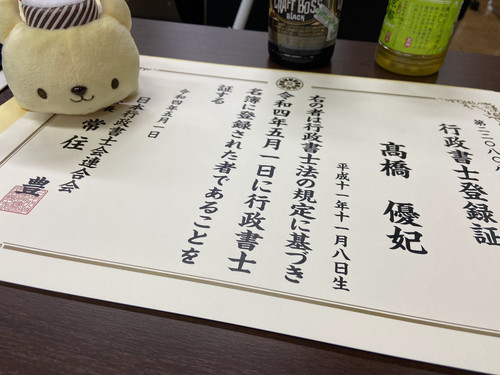 行政書士登録証
髙橋 優妃
平成十一年十一月八日生
右の者は行政書士法の規定に基づき
令和四年五月一日に行政書士
名簿に登録された者であることを
証する
令和四年五月一日
日本行政書士会連合会
常住 豊
CRAFT BOSS
BLACK